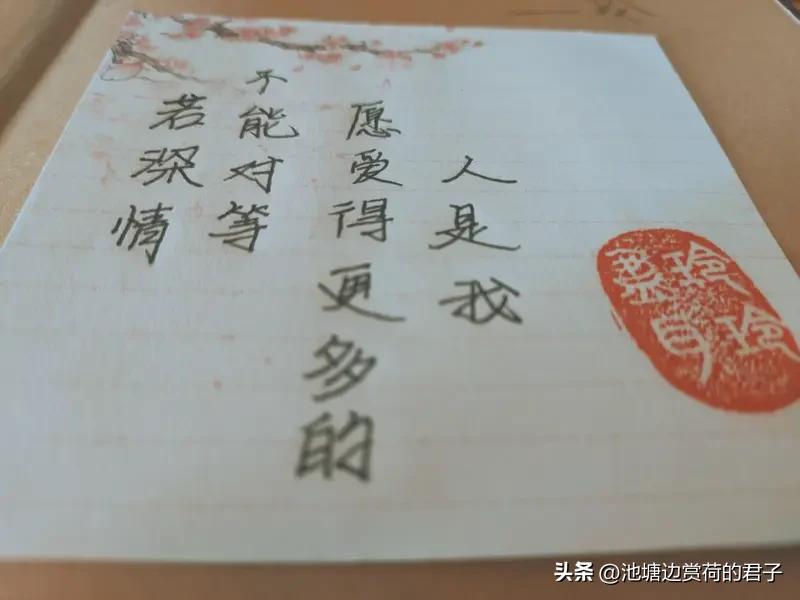 若深情
不能对等
愿爱得更多的
人是我
头条 @池塘边赏荷的君子